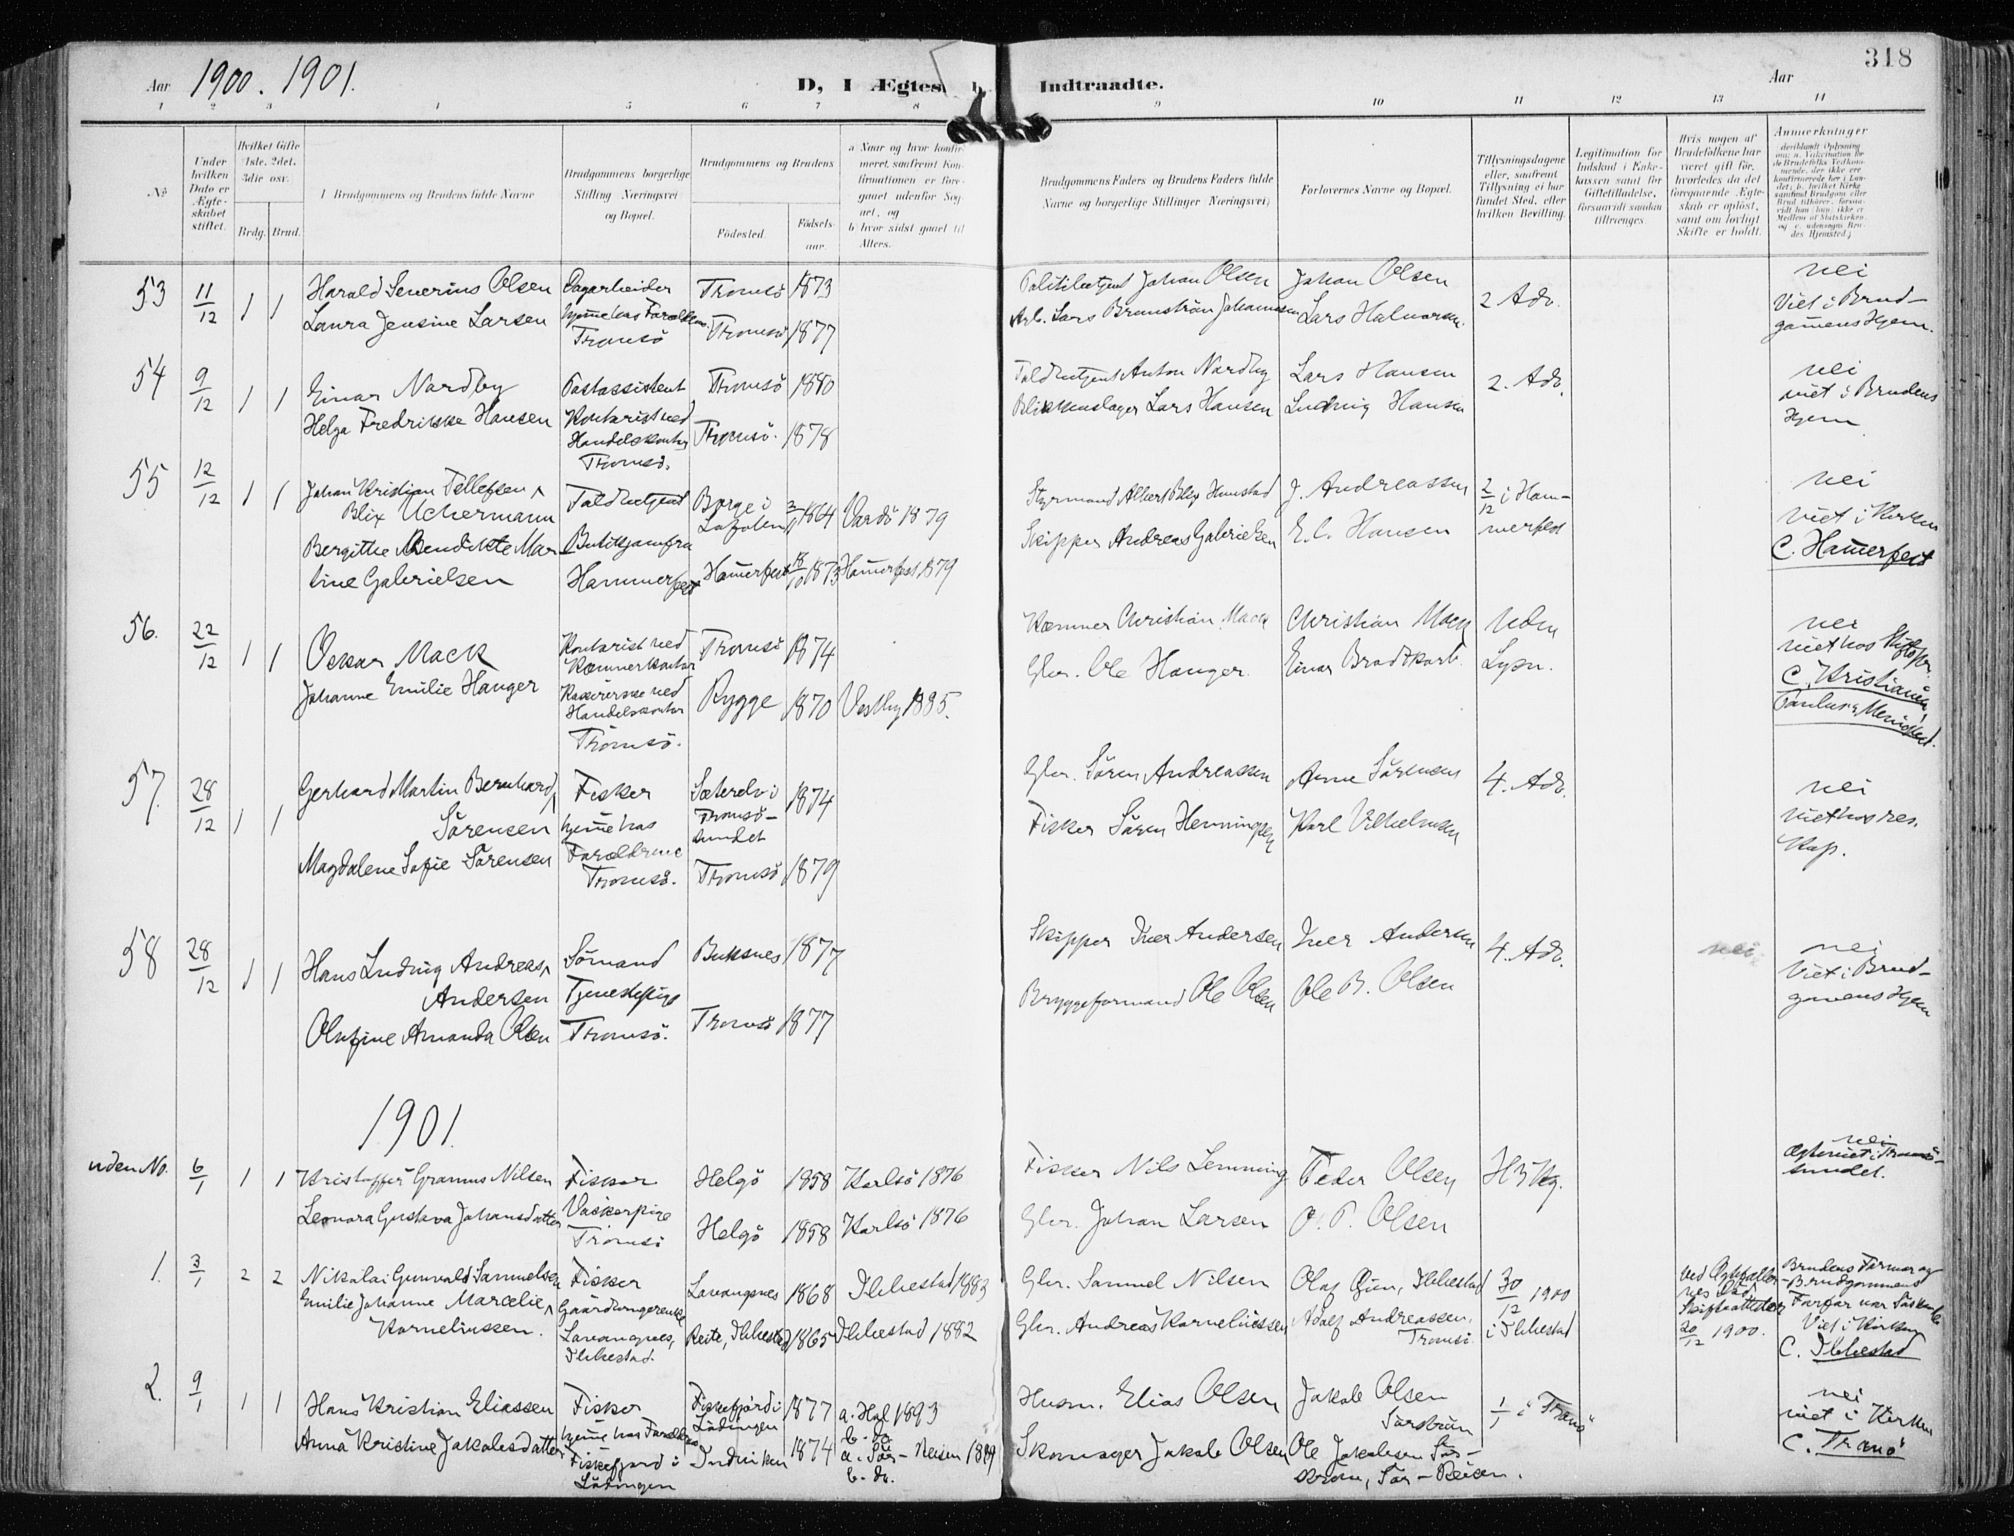 318
Aar 1900. 1901.
D, I Ægtes
Indtraadte.
Aar
1 2 3 4 5 6 7 8 9 10 11 12 13 14
No
Under hvilken Dato er Ægteskabet stiftet.
Hvilket Gifte 1ste, 2det, 3die osv.
Brdg. Brud.
Brudgommens og Brudens fulde Navne
Brudgommens borgerlige Stilling Næringsvei og Bopæl.
Brudgommens og Brudens
Fødested.
Fødselsaar.
a Naar og hvor konfirmeret, saafremt Konfirmationen er foregaaet udenfor Sognet, og
b hvor sidst gaaet til Alters.
Brudgommens Faders og Brudens Faders fulde Navne og borgerlige Stillinger Næringsvei
Forlovernes Navne og Bopæl.
Tillysningsdagene eller, saafremt Tillysning ei har fundet Sted, efter hvilken Bevilling.
Legitimation for Indskud i Enkekassen samt for Giftetilladelse, forsaavidt saadan tiltrænges
Hvis nogen af Brudefolkene har været gift før, hvorledes da det foregaaende Ægteskab er opløst, samt om lovligt Skifte er holdt.
Anmerkninger
53 11/12 1 1
Harald Severius Olsen
Dagarbeider
Tromsö 1873
Politibetjent Johan Olsen
Johan Olsen
2 Adv.
nei
Viet i Brudgomens Hjem.
Laura Jensine Larsen
hjemme hos Foræld
Tromsö
Tromsö 1877
Arb. Lars Brunström Johannesen
Lars Halvorsen.
54 9/12 1 1
Einar Nordby
Postassistent
Tromsö 1880
Toldbetjent Anton Nordby
Lars Hansen
2. Adv.
nei
viet i Brudens Hjem
Helga Fredrikke Hansen
Kontorist ved Handelskontor
Tromsö.
Tromsö. 1878
Blikkenslager Lars Hansen
Ludvig Hansen
55 12/12 1 1
Johan Kristian Tellefsen
Blix Uchermann
Toldbetjent
Borge i Lofoten 1864
Vardö 1879
Styrmand Albert Blix Hunstad
J. Andreassen
2/12 i Hammerfest
nei
Viet i Kirken
C. Hamerfest
Bergithe Bendikte Martine Gabrielsen
Butikjomfru
Hammerfest
Hamerfest 1873
Hamerfest 1879
Skipper Andreas Gabrielsen
E. C. Hansen
56. 22/12 1 1
Oskar Mack
Kontorist ved Kæmnerkontor
Tromsö 1874
Kæmner Christian Mack
Christian Mack
Uden Lysn.
nei
viet hos
C. Kristiania
Johanne Emilie Hauger
Kasererske ved Handelskontor
Tromsö.
Rygge 1870
Vestby 1885.
Gbr. Ole Hauger.
Einar Brodtkorb.
57. 28/12 1 1
Gerhard Martin Bernhard
Sörensen
Fisker
Sæterelv i Tromsösundet 1874
Gbr. Sören Andreassen
Arne Sörensen
4. Adv.
nei
viet hos res. Kap.
Magdalene Sofie Sörensen
hjemme hos Forældrene
Tromsö.
Tromsö 1879
Fisker Sören Henningsen
Karl Vilhelmsen
58 28/12 1 1
Hans Ludvig Andreas
Andersen
Sömand
Buksnes 1877
Skipper Iver Andersen
Iver Andersen
4. Adv.
nei
nei
Viet i Brudgomens Hjem
Olufine Amanda Olsen
Tjenestepige
Tromsö.
Tromsö 1877
Bryggeformand Ole Olsen
Ole B. Olsen
1901.
uden No. 6/1 1 1
Kristoffer Grannus Nilsen
Fisker
Helgö 1858
Karlsö 1876
Fisker Nils Lemming
Peder Olsen
nei
Leonora Gustava Johansdatter
Vaskerpige
Tromsö
Helgö 1858
Karlsö 1876
Gbr. Johan Larsen
O. P. Olsen
1. 3/1 2 2
Nikolai Gunvald Samuelsen
Fisker
Lavangsnes 1868
Ibbestad 1883
Gbr. Samuel Nilsen
Olaf Qvin, Ibbestad
30/12 1900 i Ibbestad
20/12 1900.
Brudens Farmor og Brudgommens Farfar var Söskende
Viet i Kirken
C. Ibbestad
Emilie Johanne Marcelie
Korneliussen.
Gaardbrugerenke
Lavangnes, Ibbestad.
Reite, Ibbestad 1865
Ibbestad 1882
Gbr. Andreas Korneliussen
Adolf Andreassen, Tromsö.
2. 9/1 1 1
Hans Kristian Eliassen
Fisker
Fiskefjord i Lödingen 1877
a. Hol 1893
b. do
Husm. Elias Olsen
Jakob Olsen
Sörström
1/1 i Tranö
nei
viet i Kirken
C. Tranö
Anna Kristine Jakobsdatter
hjemme hos Forældre
Fiskefjord i Lödingen
1874
a. Sör-Reisen 1889
b. do.
Skomager Jakob Olsen
Ole Jakobsen Sörström, Sör-Reisen.